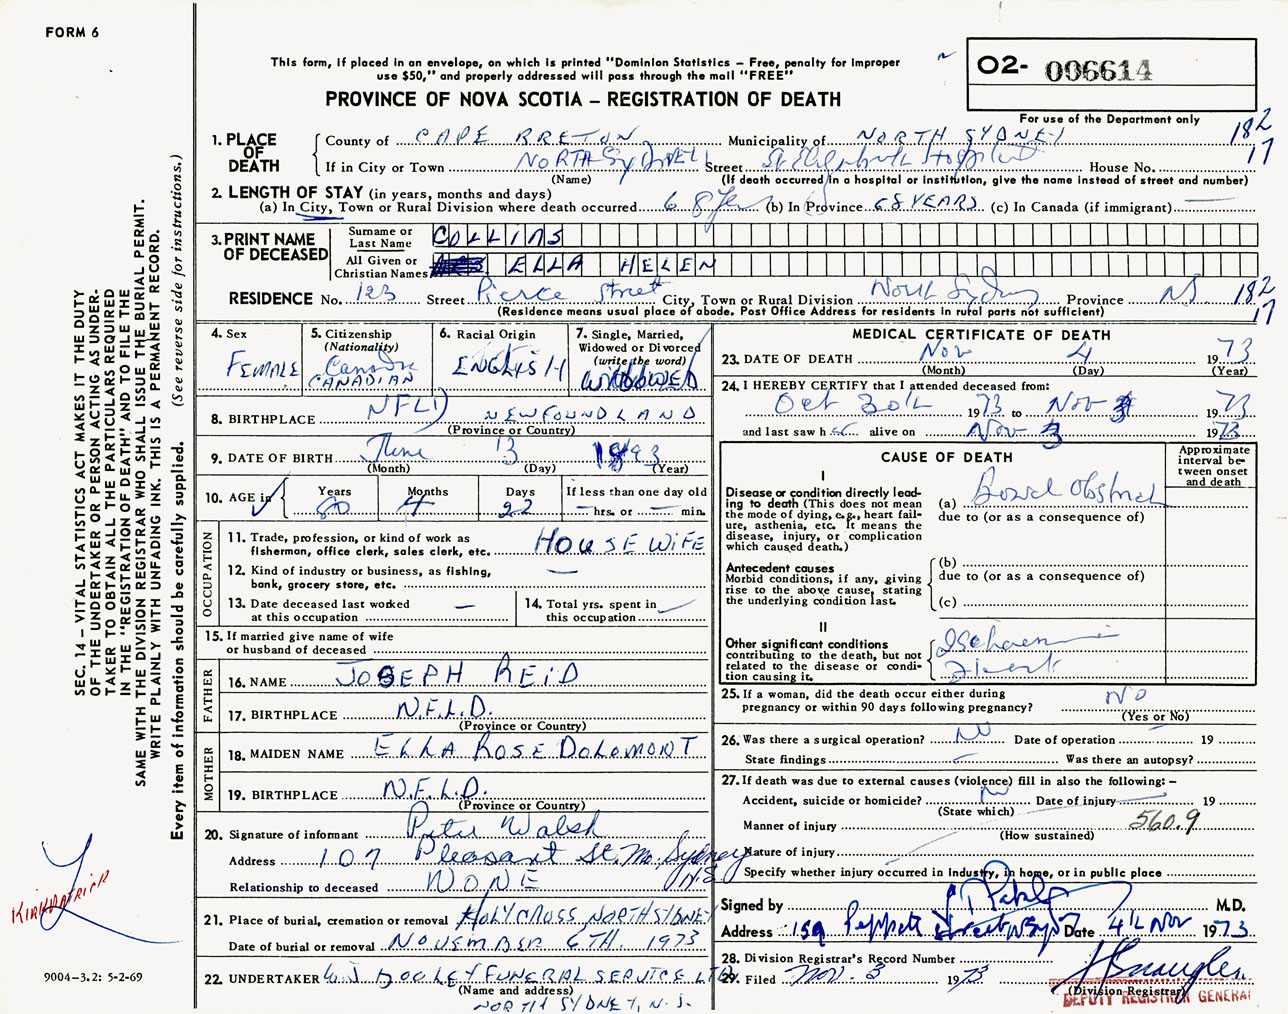 FORM 6
This form, if placed in an envelope, on which is printed "Dominion Statistics – Free, penalty for improper
use $50," and properly addressed will pass through the mail "FREE"
PROVINCE OF NOVA SCOTIA – REGISTRATION OF DEATH
02- 006614
For use of the Department only
182
17
1. PLACE OF DEATH
County of CAPE BRETON Municipality of NORTH SYDNEY
If in City or Town NORTH SYDNEY Street St Elizabeth Hospital House No.
(Name) (If death occurred in a hospital or institution, give the name instead of street and number)
2. LENGTH OF STAY (in years, months and days)
(a) In City, Town or Rural Division where death occurred 68 Yrs (b) In Province 68 YEARS (c) In Canada (if immigrant) —
3. PRINT NAME OF DECEASED
Surname or Last Name COLLINS
All Given or Christian Names ELLA HELEN
RESIDENCE No. 123 Street Pierce Street City, Town or Rural Division North Sydney Province NS
182
17
(Residence means usual place of abode. Post Office Address for residents in rural parts not sufficient)
4. Sex
FEMALE
5. Citizenship
(Nationality)
CANADIAN
6. Racial Origin
ENGLISH
7. Single, Married,
Widowed or Divorced
(write the word)
WIDOWED
8. BIRTHPLACE NFLD NEWFOUNDLAND
(Province or Country)
9. DATE OF BIRTH June 13 1893
(Month) (Day) (Year)
10. AGE in
Years Months Days If less than one day old
80 4 22 — hrs. or — min.
OCCUPATION
11. Trade, profession, or kind of work as
fisherman, office clerk, sales clerk, etc. HOUSEWIFE
12. Kind of industry or business, as fishing,
bank, grocery store, etc. —
13. Date deceased last worked
at this occupation —
14. Total yrs. spent in
this occupation —
15. If married give name of wife
or husband of deceased
FATHER
16. NAME JOSEPH REID
17. BIRTHPLACE N.F.L.D.
(Province or Country)
MOTHER
18. MAIDEN NAME ELLA ROSE DOLOMONT
19. BIRTHPLACE N.F.L.D.
(Province or Country)
20. Signature of informant Peter Walsh
Address 107 Pleasant St. No. Sydney N.S.
Relationship to deceased NONE
21. Place of burial, cremation or removal HOLY CROSS NORTH SYDNEY
Date of burial or removal NOVEMBER 6TH. 1973
22. UNDERTAKER W.J. DOOLEY FUNERAL SERVICE LTD
(Name and address)
NORTH SYDNEY, N.S.
MEDICAL CERTIFICATE OF DEATH
23. DATE OF DEATH Nov 4 1973
(Month) (Day) (Year)
24. I HEREBY CERTIFY that I attended deceased from:
Oct 30th 1973 to Nov 3 1973
and last saw her alive on Nov 3 1973
CAUSE OF DEATH
Approximate
interval be-
tween onset
and death
I
Disease or condition directly lead-
ing to death (This does not mean
the mode of dying, e.g., heart fail-
ure, asthenia, etc. It means the
disease, injury, or complication
which caused death.)
(a) Bowel Obstruct
due to (or as a consequence of)
Antecedent causes
Morbid conditions, if any, giving
rise to the above cause, stating
the underlying condition last.
(b)
due to (or as a consequence of)
(c)
II
Other significant conditions
contributing to the death, but not
related to the disease or condi-
tion causing it.
Ischaemic
Heart
25. If a woman, did the death occur either during
pregnancy or within 90 days following pregnancy? NO
(Yes or No)
26. Was there a surgical operation? No Date of operation 19
State findings — Was there an autopsy?
27. If death was due to external causes (violence) fill in also the following: –
Accident, suicide or homicide? No Date of injury — 19
(State which)
Manner of injury 560.9
(How sustained)
Nature of injury
Specify whether injury occurred in industry, in home, or in public place
Signed by M.D.
Address 159 Peppett Street N Syd Date 4th Nov 1973
28. Division Registrar's Record Number
29. Filed Nov. 3 1973
(Division Registrar)
DEPUTY REGISTRAR GENERAL
SEC. 14 – VITAL STATISTICS ACT MAKES IT THE DUTY
OF THE UNDERTAKER OR PERSON ACTING AS UNDER-
TAKER TO OBTAIN ALL THE PARTICULARS REQUIRED
IN THE "REGISTRATION OF DEATH" AND TO FILE THE
SAME WITH THE DIVISION REGISTRAR WHO SHALL ISSUE THE BURIAL PERMIT.
WRITE PLAINLY WITH UNFADING INK. THIS IS A PERMANENT RECORD.
Every item of information should be carefully supplied. (See reverse side for instructions.)
KIRKPATRICK
9004-3.2: 5-2-69